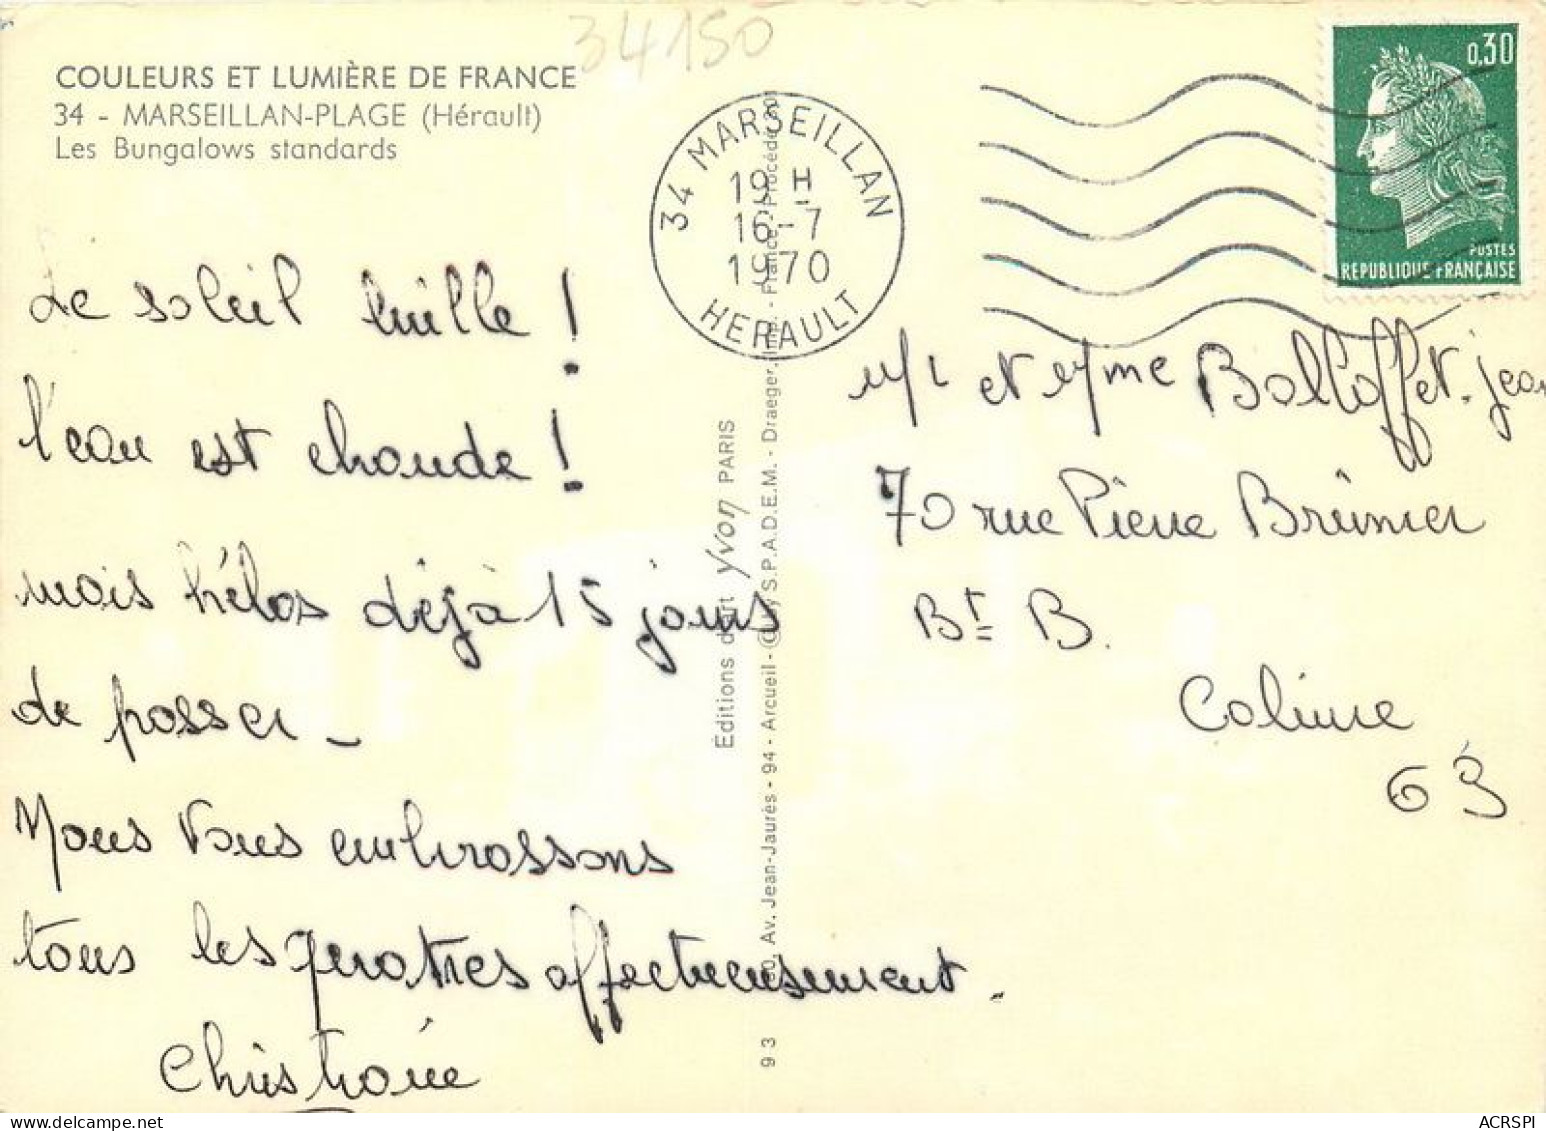 34150
COULEURS ET LUMIÈRE DE FRANCE
34 - MARSEILLAN-PLAGE (Hérault)
Les Bungalows standards
34 MARSEILLAN
19 H
16-7
1970
HERAULT
0,30
POSTES
REPUBLIQUE FRANÇAISE
Le soleil brille !
l'eau est chaude !
mais hélas déjà 15 jours
de passer _
Nous vous embrassons
tous les quatres affectueusement.
Christiane
Éditions d'art Yvon PARIS
Av. Jean-Jaurès - 94 - Arcueil - © by S.P.A.D.E.M. - Draeger, Imp. - France - Procédé
93
et Mme Balloffet. jean
70 rue Pierre Brünier
Bt B.
Caluire
69
ACRSPI